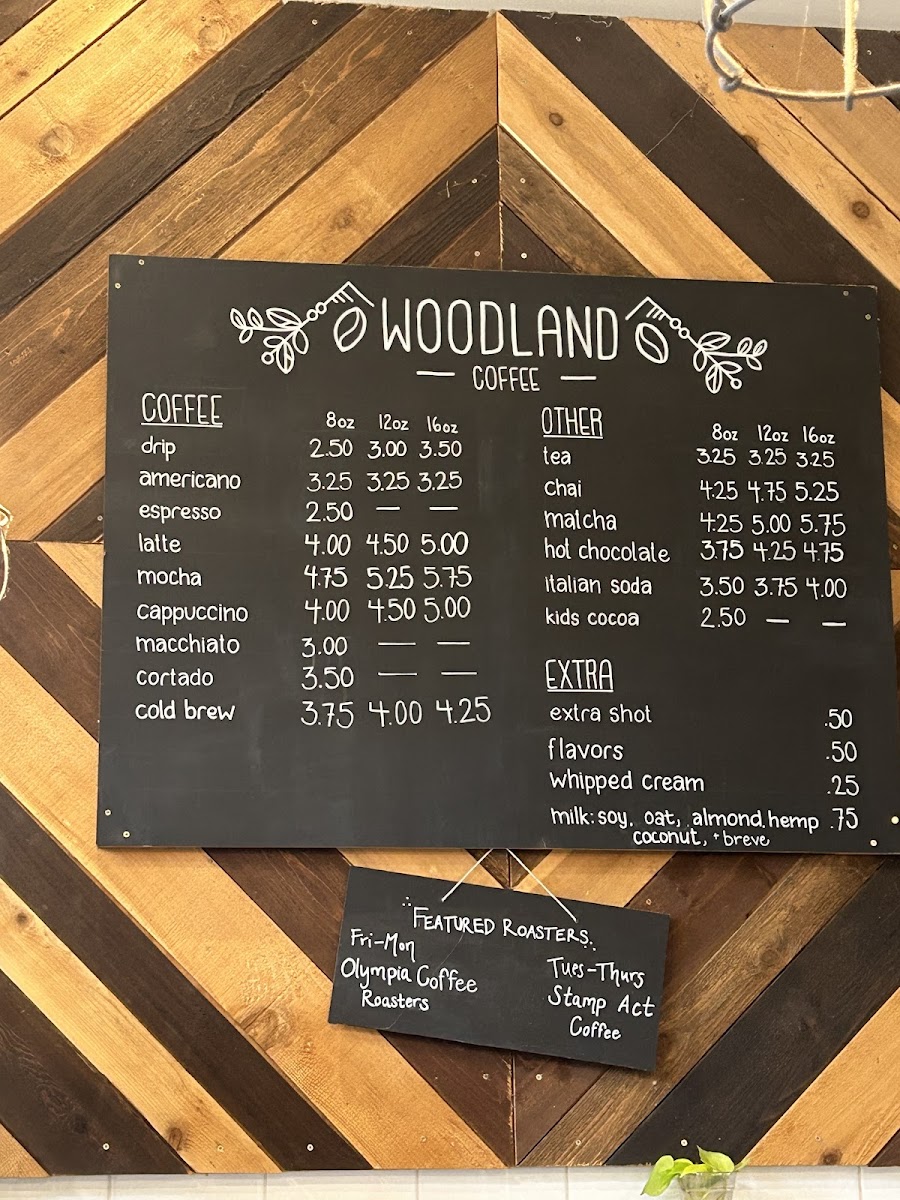 WOODLAND
COFFEE
COFFEE
8oz 12oz 16oz
drip 2.50 3.00 3.50
americano 3.25 3.25 3.25
espresso 2.50 — —
latte 4.00 4.50 5.00
mocha 4.75 5.25 5.75
cappuccino 4.00 4.50 5.00
macchiato 3.00 — —
cortado 3.50 — —
cold brew 3.75 4.00 4.25
OTHER
8oz 12oz 16oz
tea 3.25 3.25 3.25
chai 4.25 4.75 5.25
matcha 4.25 5.00 5.75
hot chocolate 3.75 4.25 4.75
italian soda 3.50 3.75 4.00
kids cocoa 2.50 — —
EXTRA
extra shot .50
flavors .50
whipped cream .25
milk: soy, oat, almond, hemp .75
coconut, + breve
FEATURED ROASTERS
Fri-Mon
Olympia Coffee
Roasters
Tues-Thurs
Stamp Act
Coffee